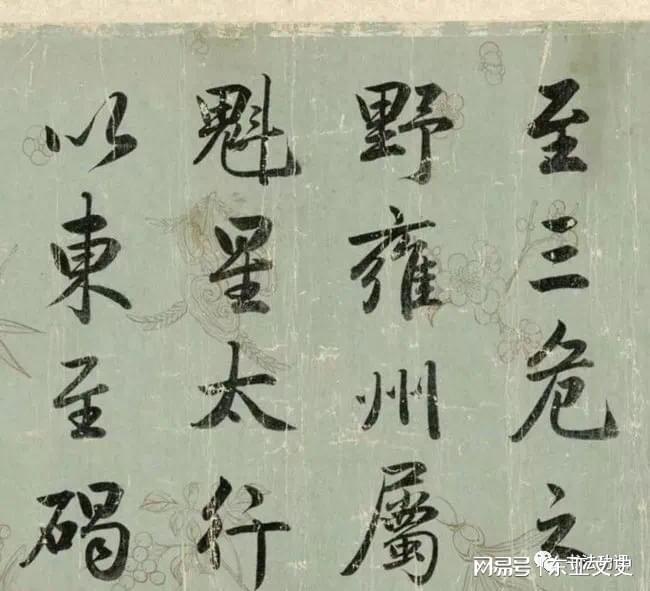 至三危之
野雍州屬
魁星太行
以東至碣
书法功课
网易号 | 东亚文史